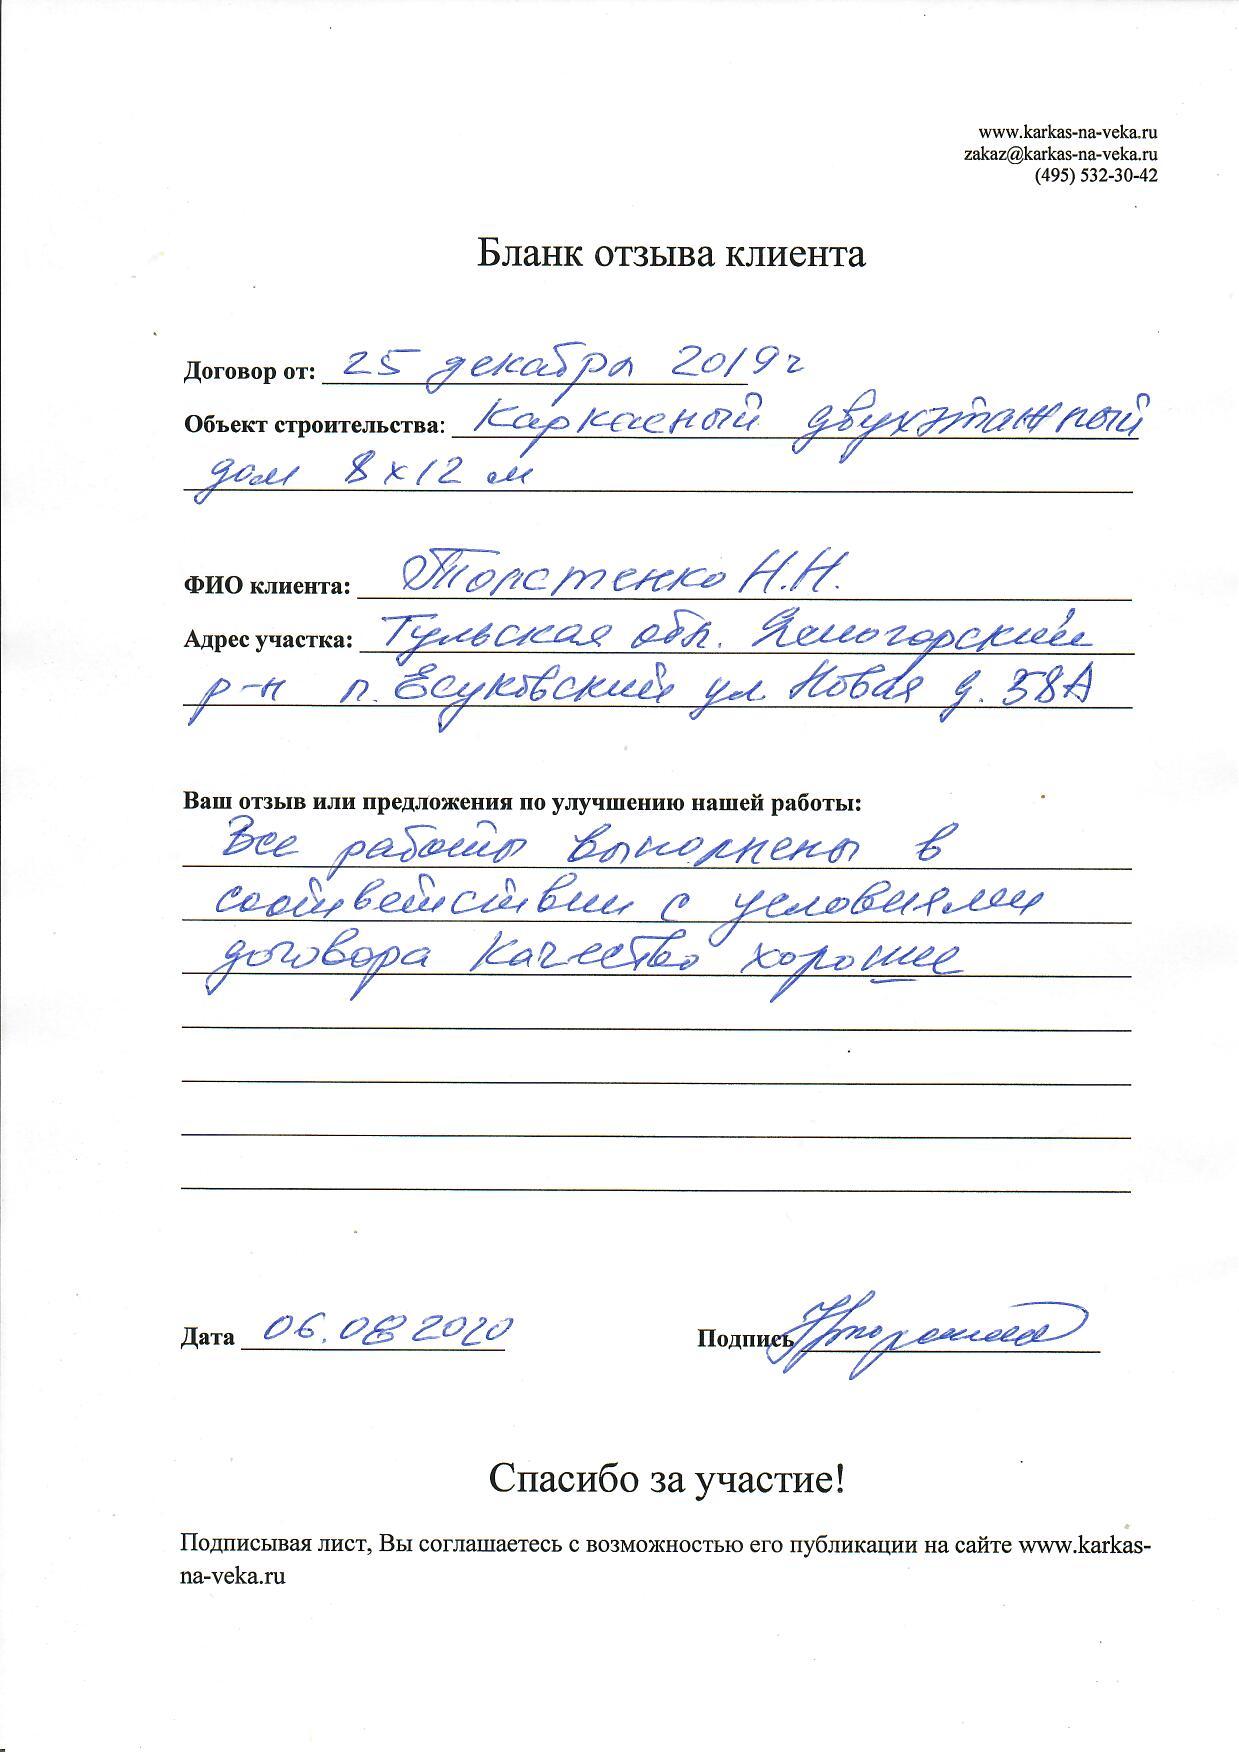 www.karkas-na-veka.ru
zakaz@karkas-na-veka.ru
(495) 532-30-42
Бланк отзыва клиента
Договор от: 25 декабря 2019г
Объект строительства: Каркасный двухэтажный
дом 8х12 м
ФИО клиента: Толстенко Н.Н.
Адрес участка: Тульская обл. Ясногорский
р-н п. Есуковский ул Новая д. 58А
Ваш отзыв или предложения по улучшению нашей работы:
Все работы выполнены в
соответствии с условиями
договора Качество хорошее
Дата 06.08 2020
Подпись
Спасибо за участие!
Подписывая лист, Вы соглашаетесь с возможностью его публикации на сайте www.karkas-
na-veka.ru